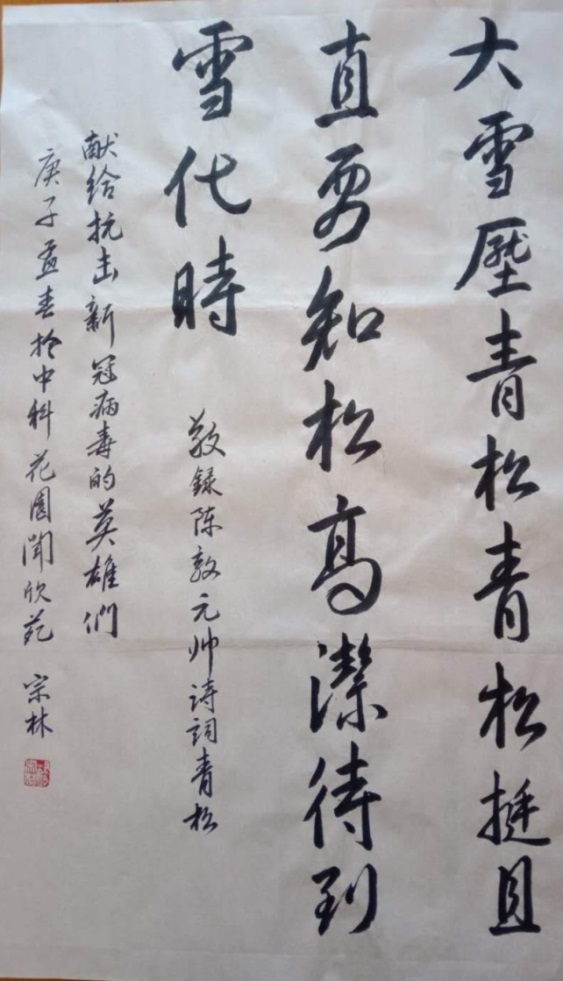 大雪壓青松青松挺且
直要知松高潔待到
雪代時
敬錄陈毅元帅诗词青松
献给抗击新冠病毒的英雄們
庚子孟春於中科花園闻欣苑 宗林